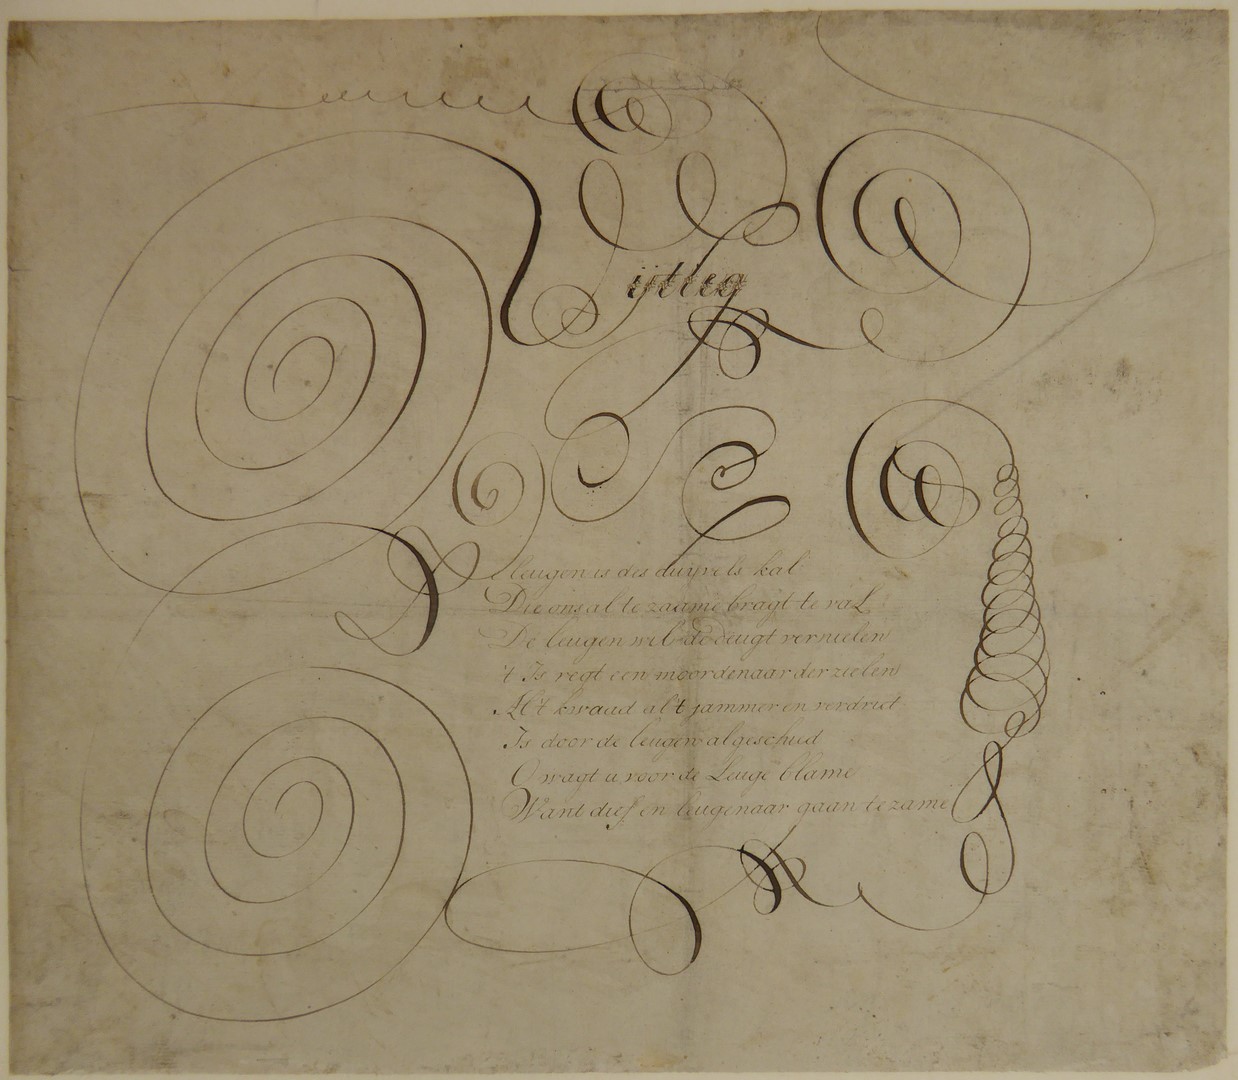 ijtleg
leugen is des duijvels kal
Die ons al te zaame bragt te val
De leugen wil de deugt vernielen
't Is regt een moordenaar der zielen
Al't kwaad al't jammer en verdriet
Is door de leugen al geschied
O wagt u voor de Leuge blame
Want dief en leugenaar gaan te zame